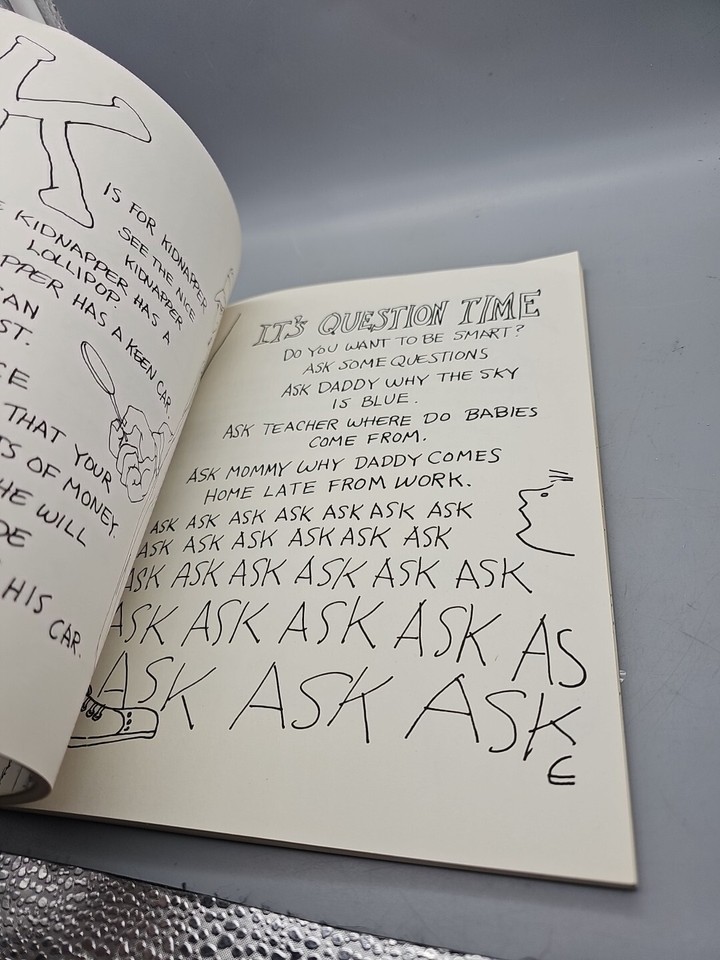 K
IS FOR KIDNAPPER
SEE THE NICE
KIDNAPPER
KIDNAPPER HAS A
LOLLIPOP.
HAS A KEEN CAR.
THAT YOUR
OF MONEY.
HE WILL
HIS CAR.
IT'S QUESTION TIME
DO YOU WANT TO BE SMART?
ASK SOME QUESTIONS
ASK DADDY WHY THE SKY
IS BLUE.
ASK TEACHER WHERE DO BABIES
COME FROM.
ASK MOMMY WHY DADDY COMES
HOME LATE FROM WORK.
ASK ASK ASK ASK ASK ASK ASK
ASK ASK ASK ASK ASK ASK
ASK ASK ASK ASK ASK ASK
ASK ASK ASK ASK AS
ASK ASK ASK